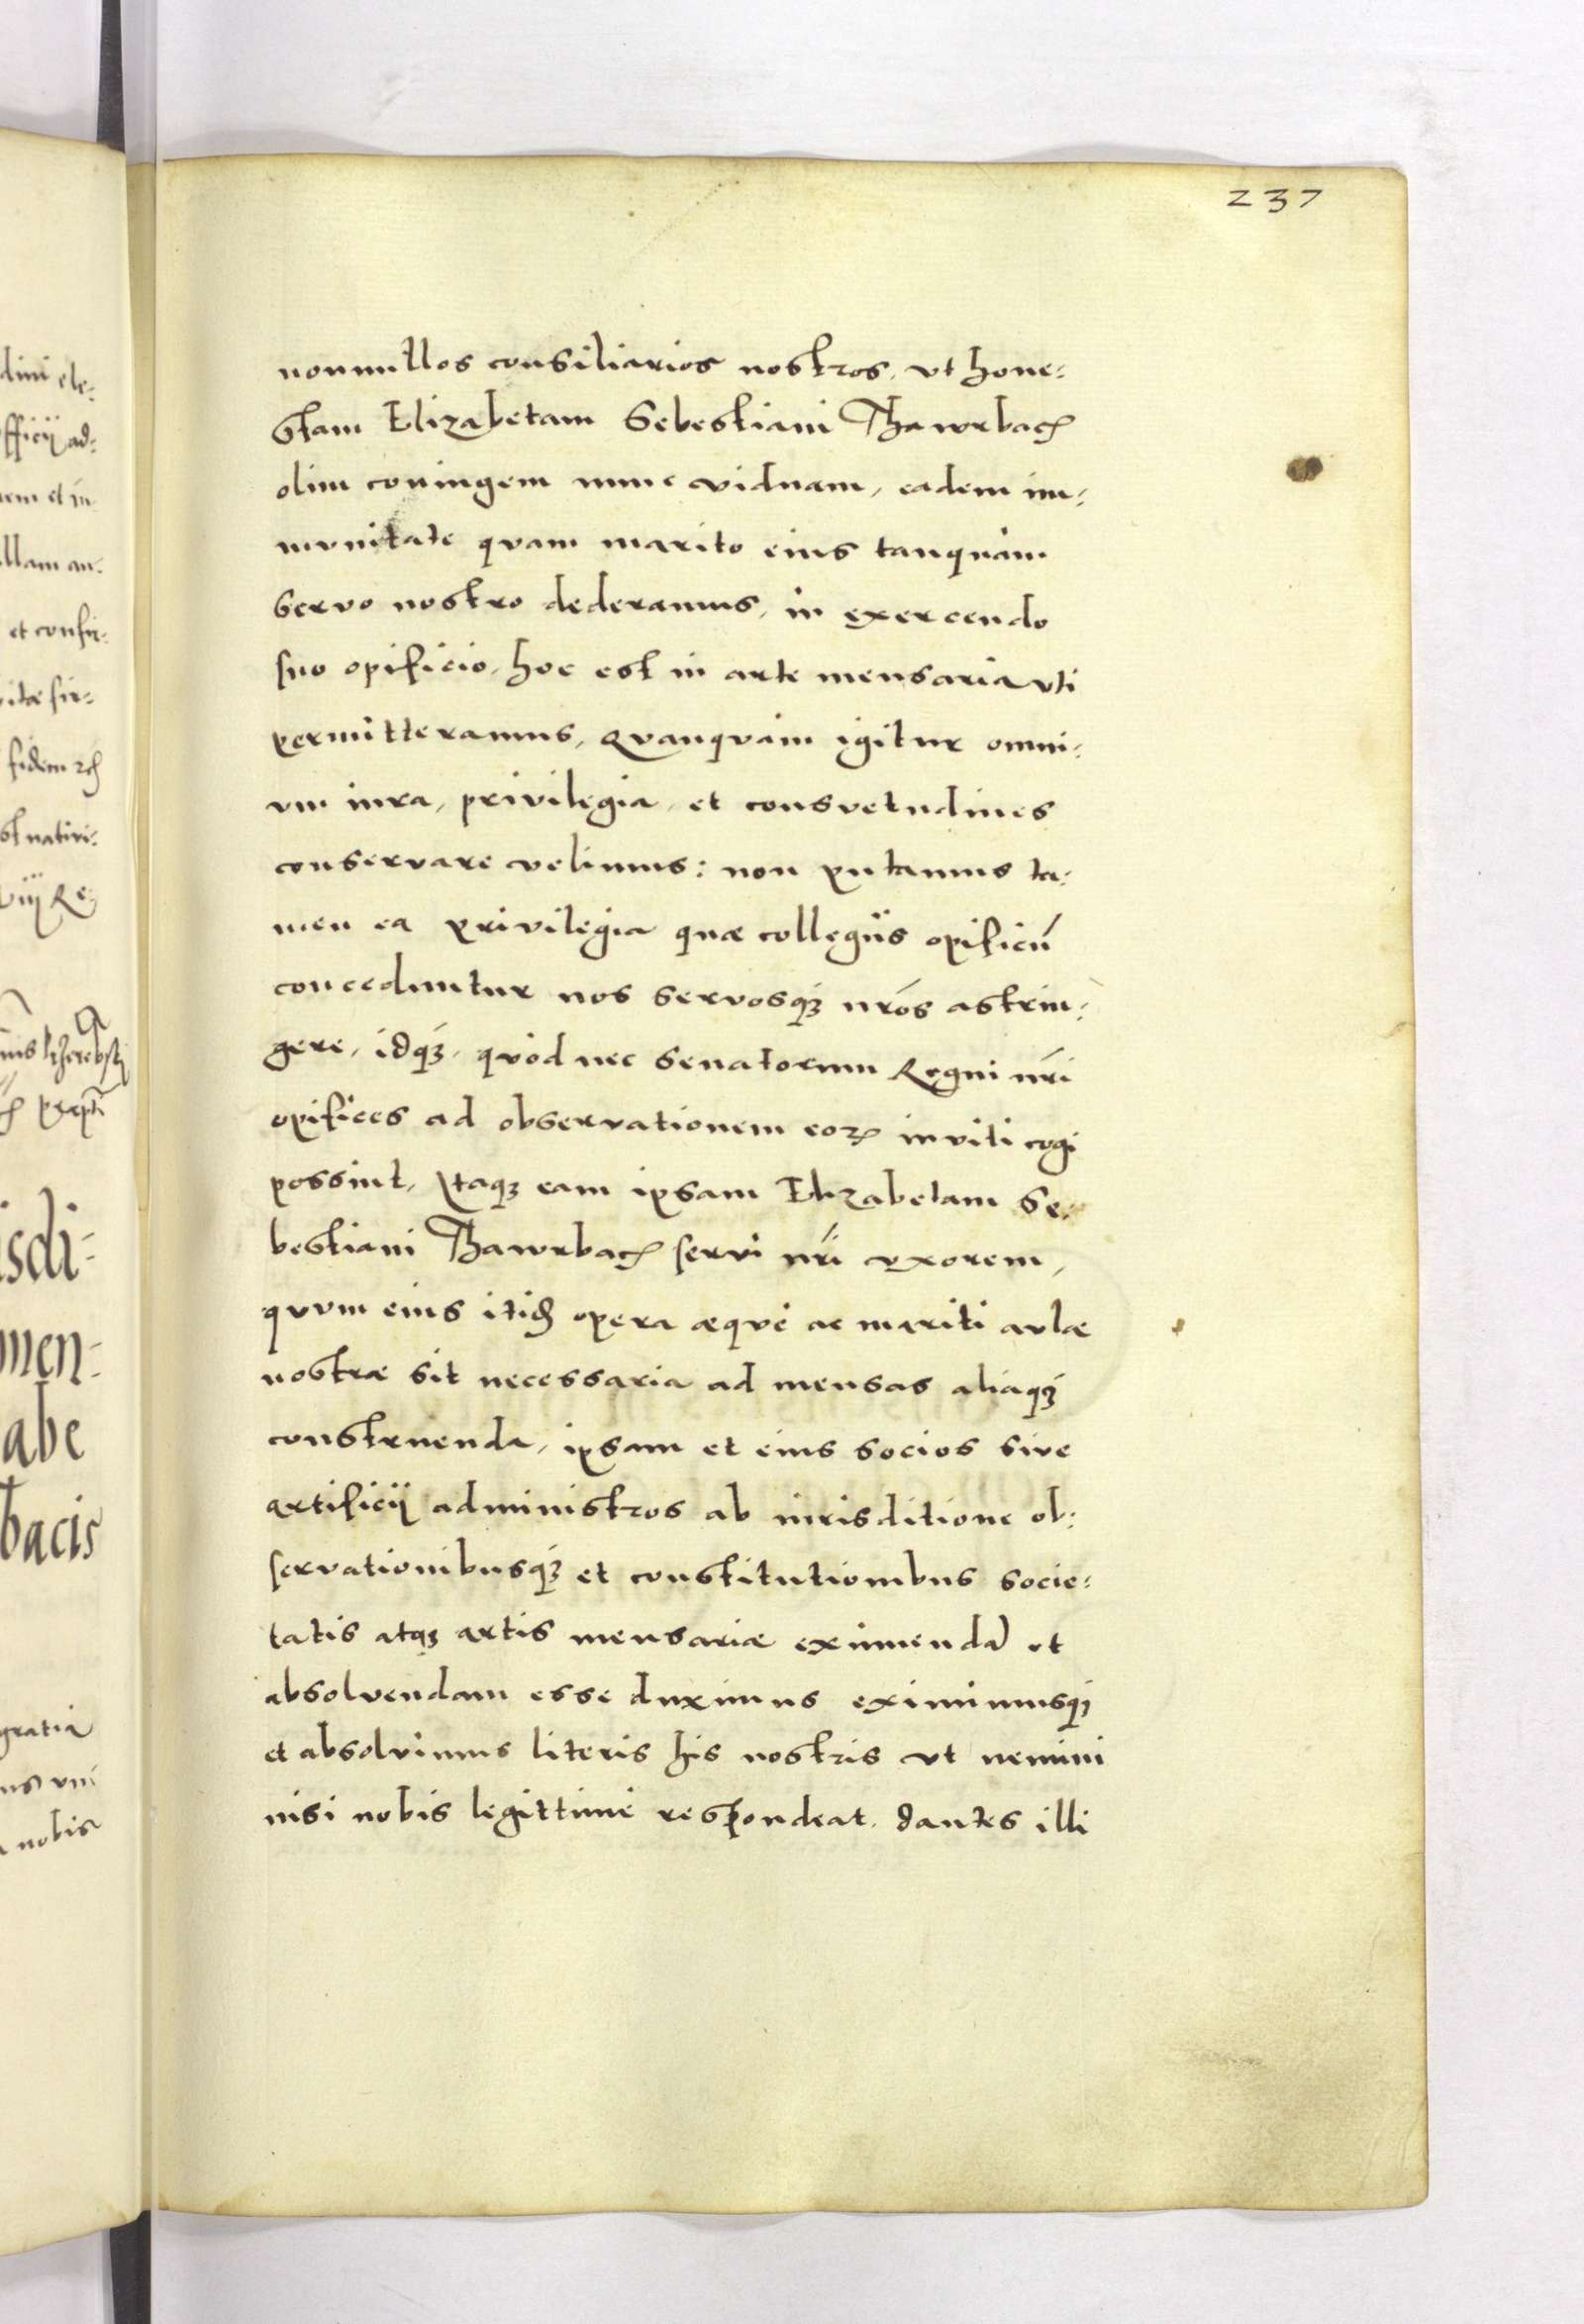 237
nonnullos consiliarios nostros, vt hone:
stam Elizabetam Sebestiani Thawrbach
olim coniugem nunc viduam, eadem im:
mvnitate qvam marito eius tanquàm
servo nostro dederamus, in exercendo
suo opificio, hoc est in arte mensaria vti
permitteramus, Qvanqvàm igitur omni:
vm iura, privilegia, et consvetudines
conservare velimus: non putamus ta:
men ea privilegia quæ collegiis opificũ
conceduntur nos servosq́ nr̃os astrin:
gere, idq́, quòd nec Senatorum Regni nr̃i
opifices ad observationem eoꝝ inviti cogi
possint, Itaqꝫ eam ipsam Elizabetam Se:
bestiani Thawrbach servi nr̃i vxorem,
qvvm eius itidẽ opera æqvè ac mariti avlæ
nostræ sit necessaria ad mensas aliaq́ꝫ
construenda, ipsam et eius socios sive
artificij administros ab iurisditione ob:
servationibusq́ꝫ et constitutionibus socie:
tatis atqꝫ artis mensariæ eximendã et
absolvendam esse duximus eximimusq́ꝫ
et absolvimus literis his nostris vt nemini
nisi nobis legittimè respondeat. dantes illi
dini ele:
fficij ad:
nem et in
llam an:
et confir:
vitæ fir:
isdi:
men:
abe
bacis
gratia
nobis